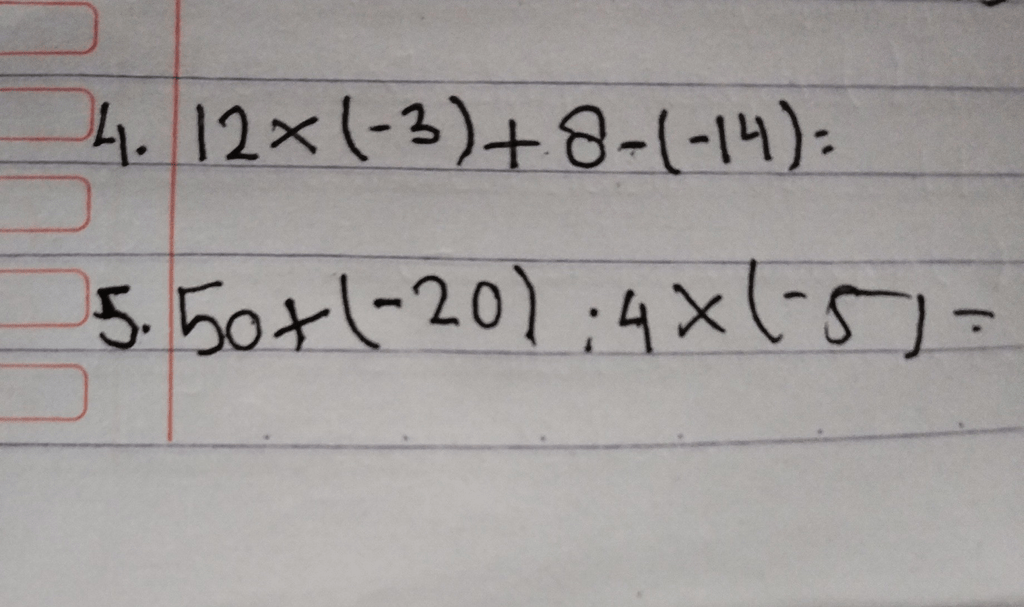 4. 12×(-3)+8-(-14)=
5. 50+(-20):4×(-5)=